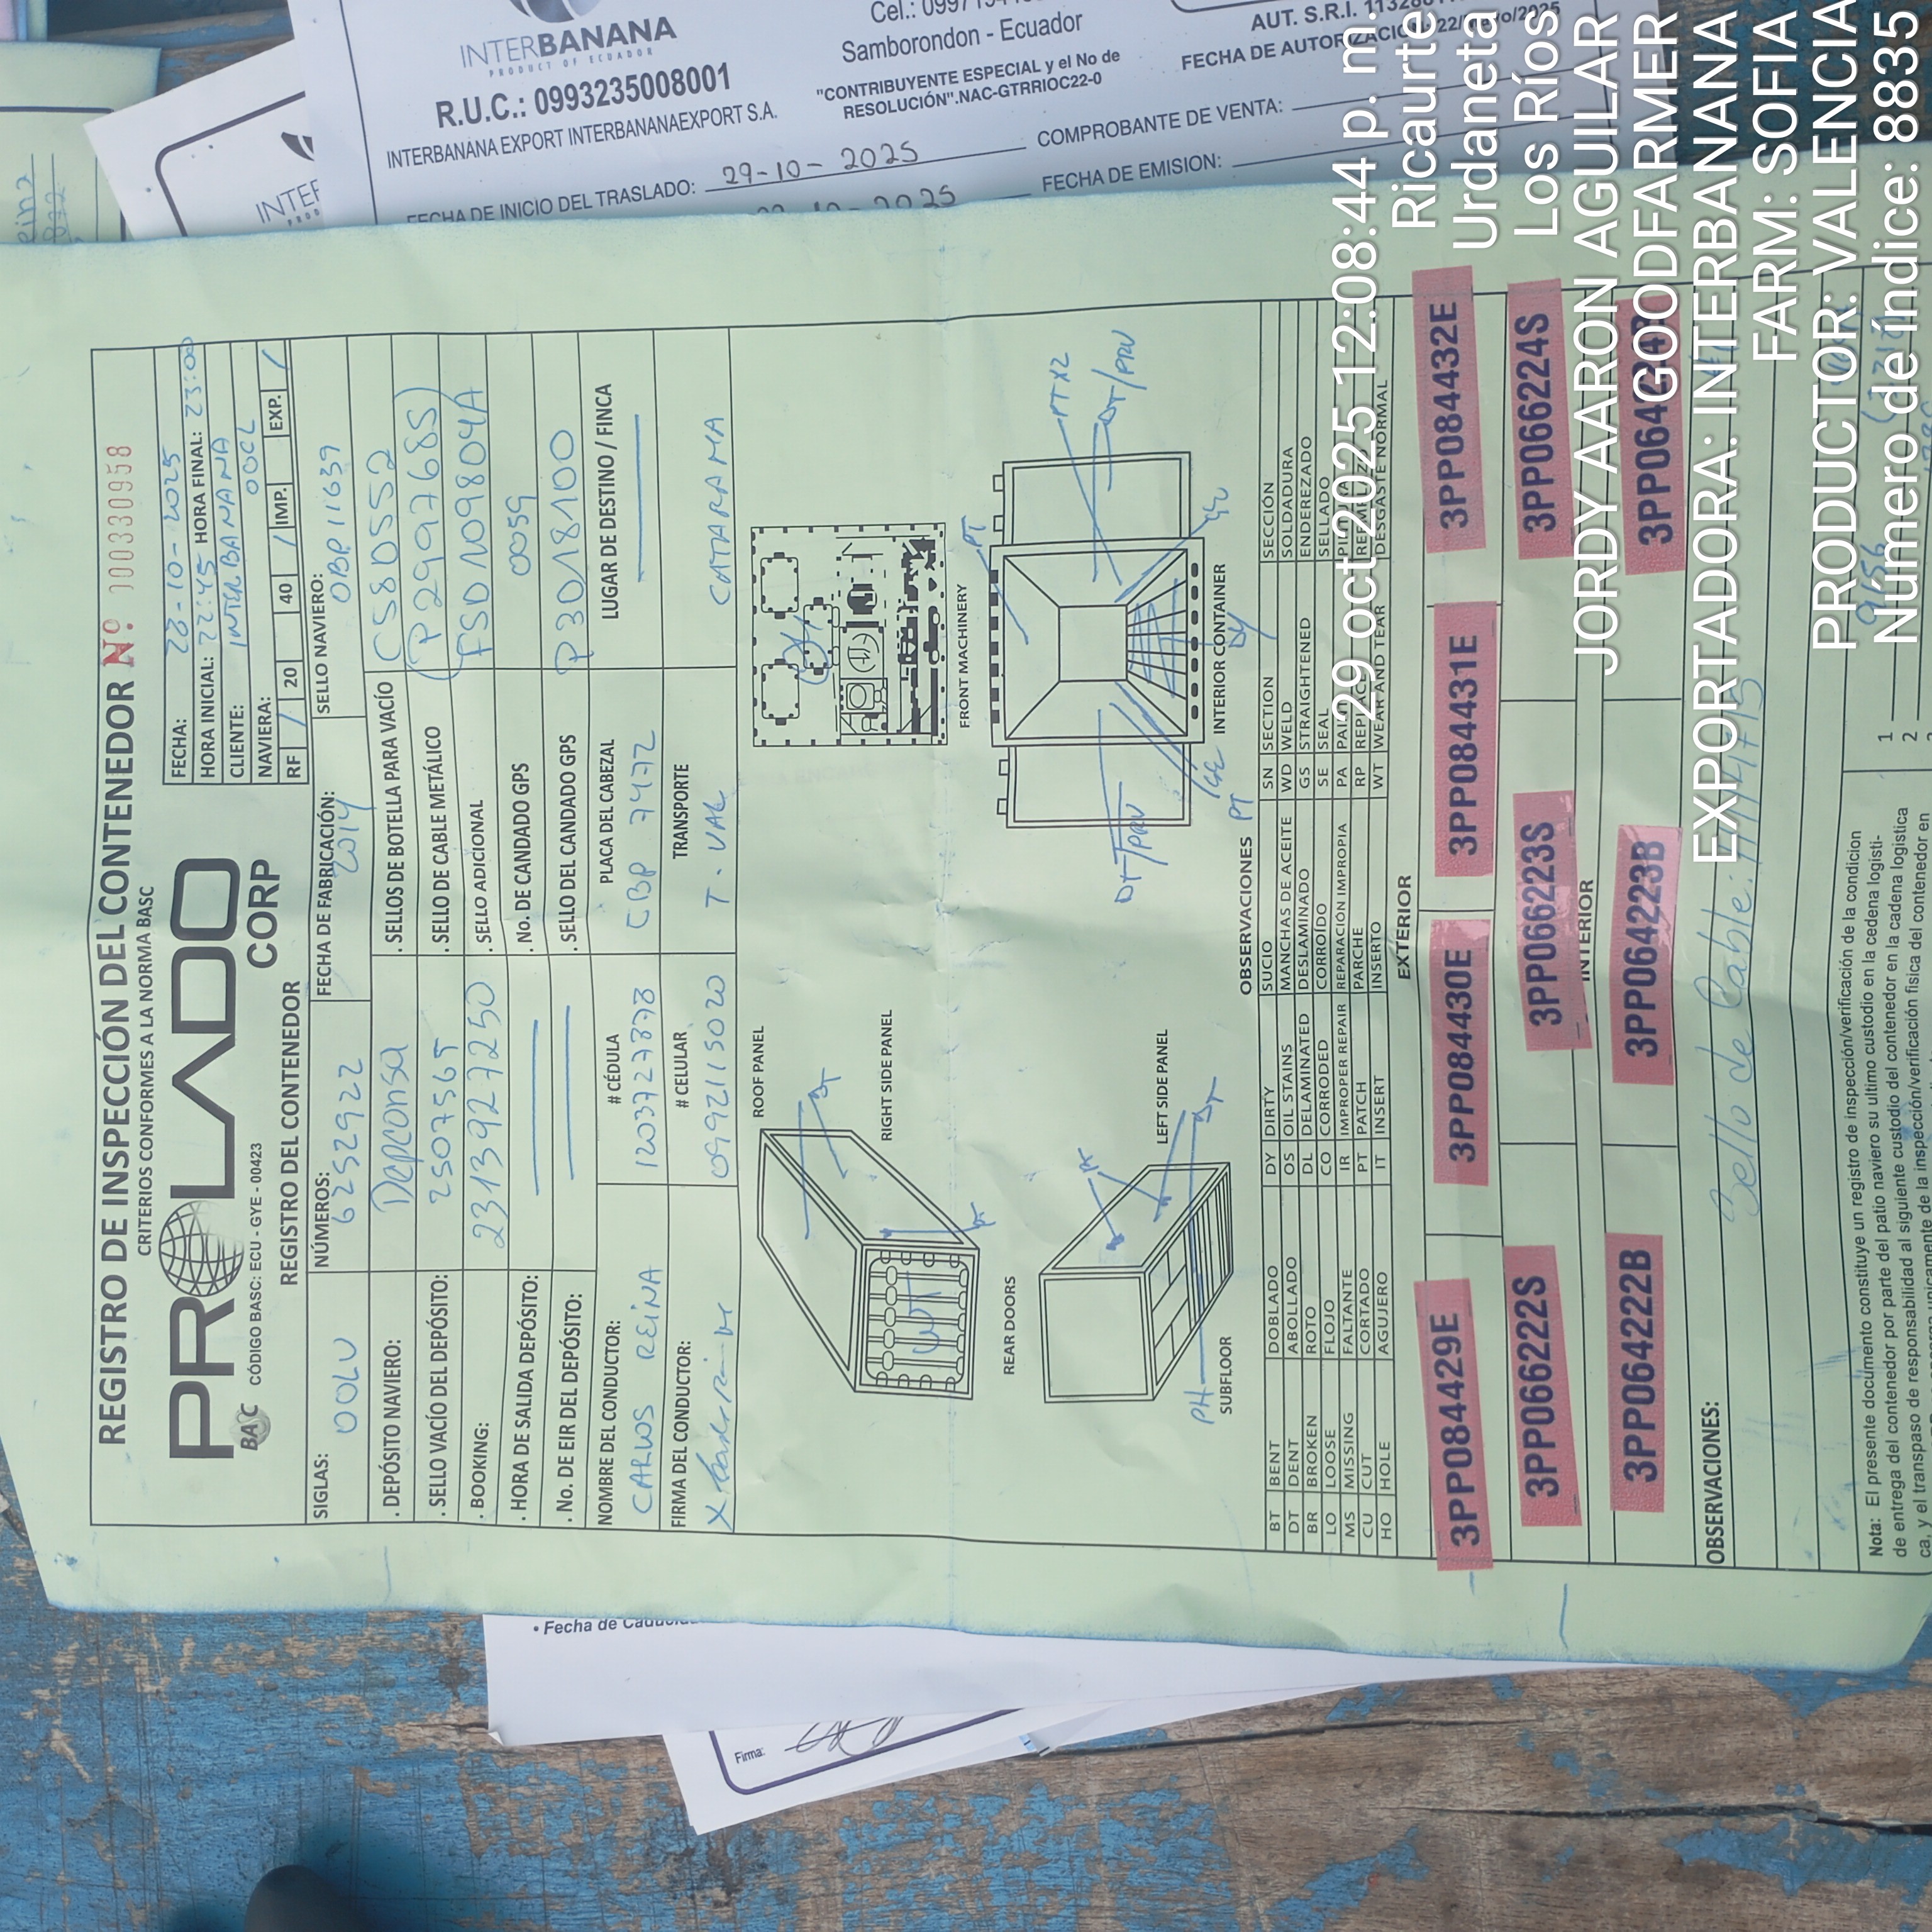 REGISTRO DE INSPECCIÓN DEL CONTENEDOR Nº 000330958
CRITERIOS CONFORMES A LA NORMA BASC
PROLADO
CORP
BASC CÓDIGO BASC: ECU - GYE - 00423
REGISTRO DEL CONTENEDOR
FECHA: 28-10-2025
HORA INICIAL: 22:45 HORA FINAL: 23:00
CLIENTE: INTERBANANA
NAVIERA: OOCL
RF / 20 40 / IMP. EXP. /
SIGLAS: OOLU
NÚMEROS: 6252922
FECHA DE FABRICACIÓN: 2014
SELLO NAVIERO: OBP11639
. DEPÓSITO NAVIERO: Depconsa
. SELLOS DE BOTELLA PARA VACÍO C580552
. SELLO VACÍO DEL DEPÓSITO: 2507565
. SELLO DE CABLE METÁLICO (P2997685)
. BOOKING: 2313927250
. SELLO ADICIONAL FSD109804A
. HORA DE SALIDA DEPÓSITO:
. No. DE CANDADO GPS 0059
. No. DE EIR DEL DEPÓSITO:
. SELLO DEL CANDADO GPS P3018100
NOMBRE DEL CONDUCTOR: CARLOS REINA
# CÉDULA 1203727878
PLACA DEL CABEZAL CBP 7472
LUGAR DE DESTINO / FINCA
FIRMA DEL CONDUCTOR:
# CELULAR 0992115020
TRANSPORTE T. VAL
CATARAMA
ROOF PANEL
DT
RIGHT SIDE PANEL
WT
REAR DOORS
FRONT MACHINERY
PT
PT X2
DT/PRV
DT/PRV
LEFT SIDE PANEL
PH
DT
SUBFLOOR
INTERIOR CONTAINER
DY
OBSERVACIONES PT
BT BENT DOBLADO DY DIRTY SUCIO SN SECTION SECCIÓN
DT DENT ABOLLADO OS OIL STAINS MANCHAS DE ACEITE WD WELD SOLDADURA
BR BROKEN ROTO DL DELAMINATED DESLAMINADO GS STRAIGHTENED ENDEREZADO
LO LOOSE FLOJO CO CORRODED CORROÍDO SE SEAL SELLADO
MS MISSING FALTANTE IR IMPROPER REPAIR REPARACIÓN IMPROPIA PA
CU CUT CORTADO PT PATCH PARCHE RP
HO HOLE AGUJERO IT INSERT INSERTO WT WEAR AND TEAR DESGASTE NORMAL
EXTERIOR
3PP084429E 3PP084430E 3PP084431E 3PP084432E
3PP066222S 3PP066223S 3PP066224S
INTERIOR
3PP064222B 3PP064223B
OBSERVACIONES:
Sello de Cable:
Nota: El presente documento constituye un registro de inspección/verificación de la condicion
de entrega del contenedor por parte del patio naviero su ultimo custodio en la cedena logisti-
ca, y el transpaso de responsabilidad al siguiente custodio del contenedor en la cadena logistica
unicamente de la inspección/verificación fisica del contenedor en
1
2
29 oct 2025 12:08:44 p. m.
Ricaurte
Urdaneta
Los Ríos
JORDY AARON AGUILAR
GOODFARMER
EXPORTADORA: INTERBANANA
FARM: SOFIA
PRODUCTOR: VALENCIA
Número de índice: 8835
INTERBANANA
PRODUCT OF ECUADOR
R.U.C.: 0993235008001
INTERBANANA EXPORT INTERBANANAEXPORT S.A.
FECHA DE INICIO DEL TRASLADO: 29-10-2025
Samborondon - Ecuador
"CONTRIBUYENTE ESPECIAL y el No de
RESOLUCIÓN".NAC-GTRRIOC22-0
COMPROBANTE DE VENTA:
FECHA DE EMISION:
Firma: